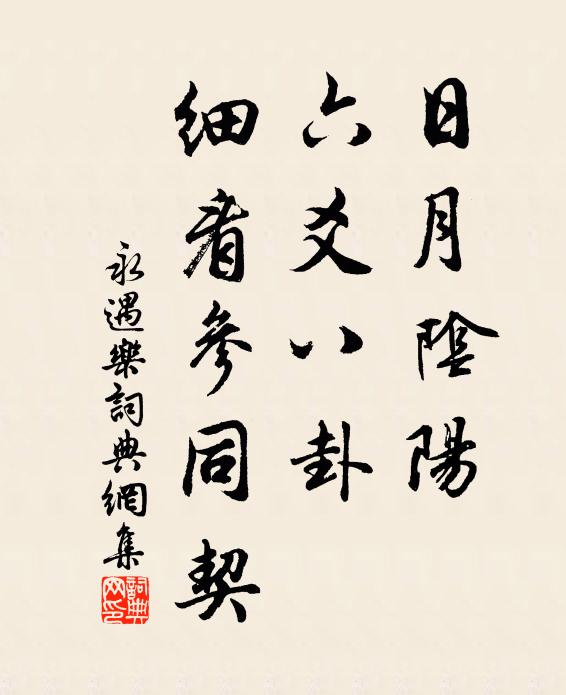 日月陰陽
六爻八卦
細看參同契
永遇樂詞典網集
詞典
网印